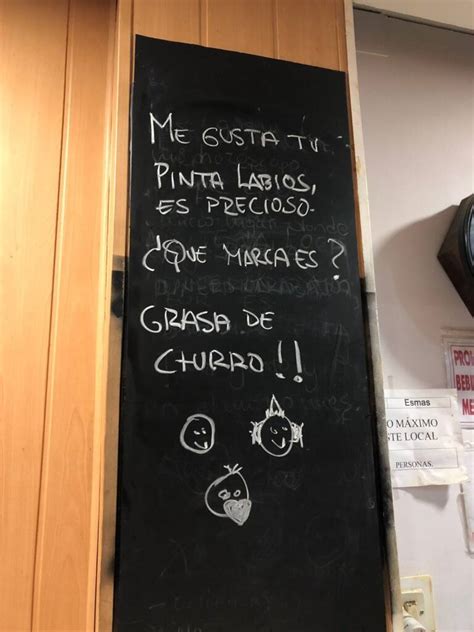 ME GUSTA TU
PINTA LABIOS,
ES PRECIOSO.
¿QUE MARCA ES?
GRASA DE
CHURRO!!
Esmas
O MÁXIMO
STE LOCAL
PERSONAS.
PROH
BEBI
ME